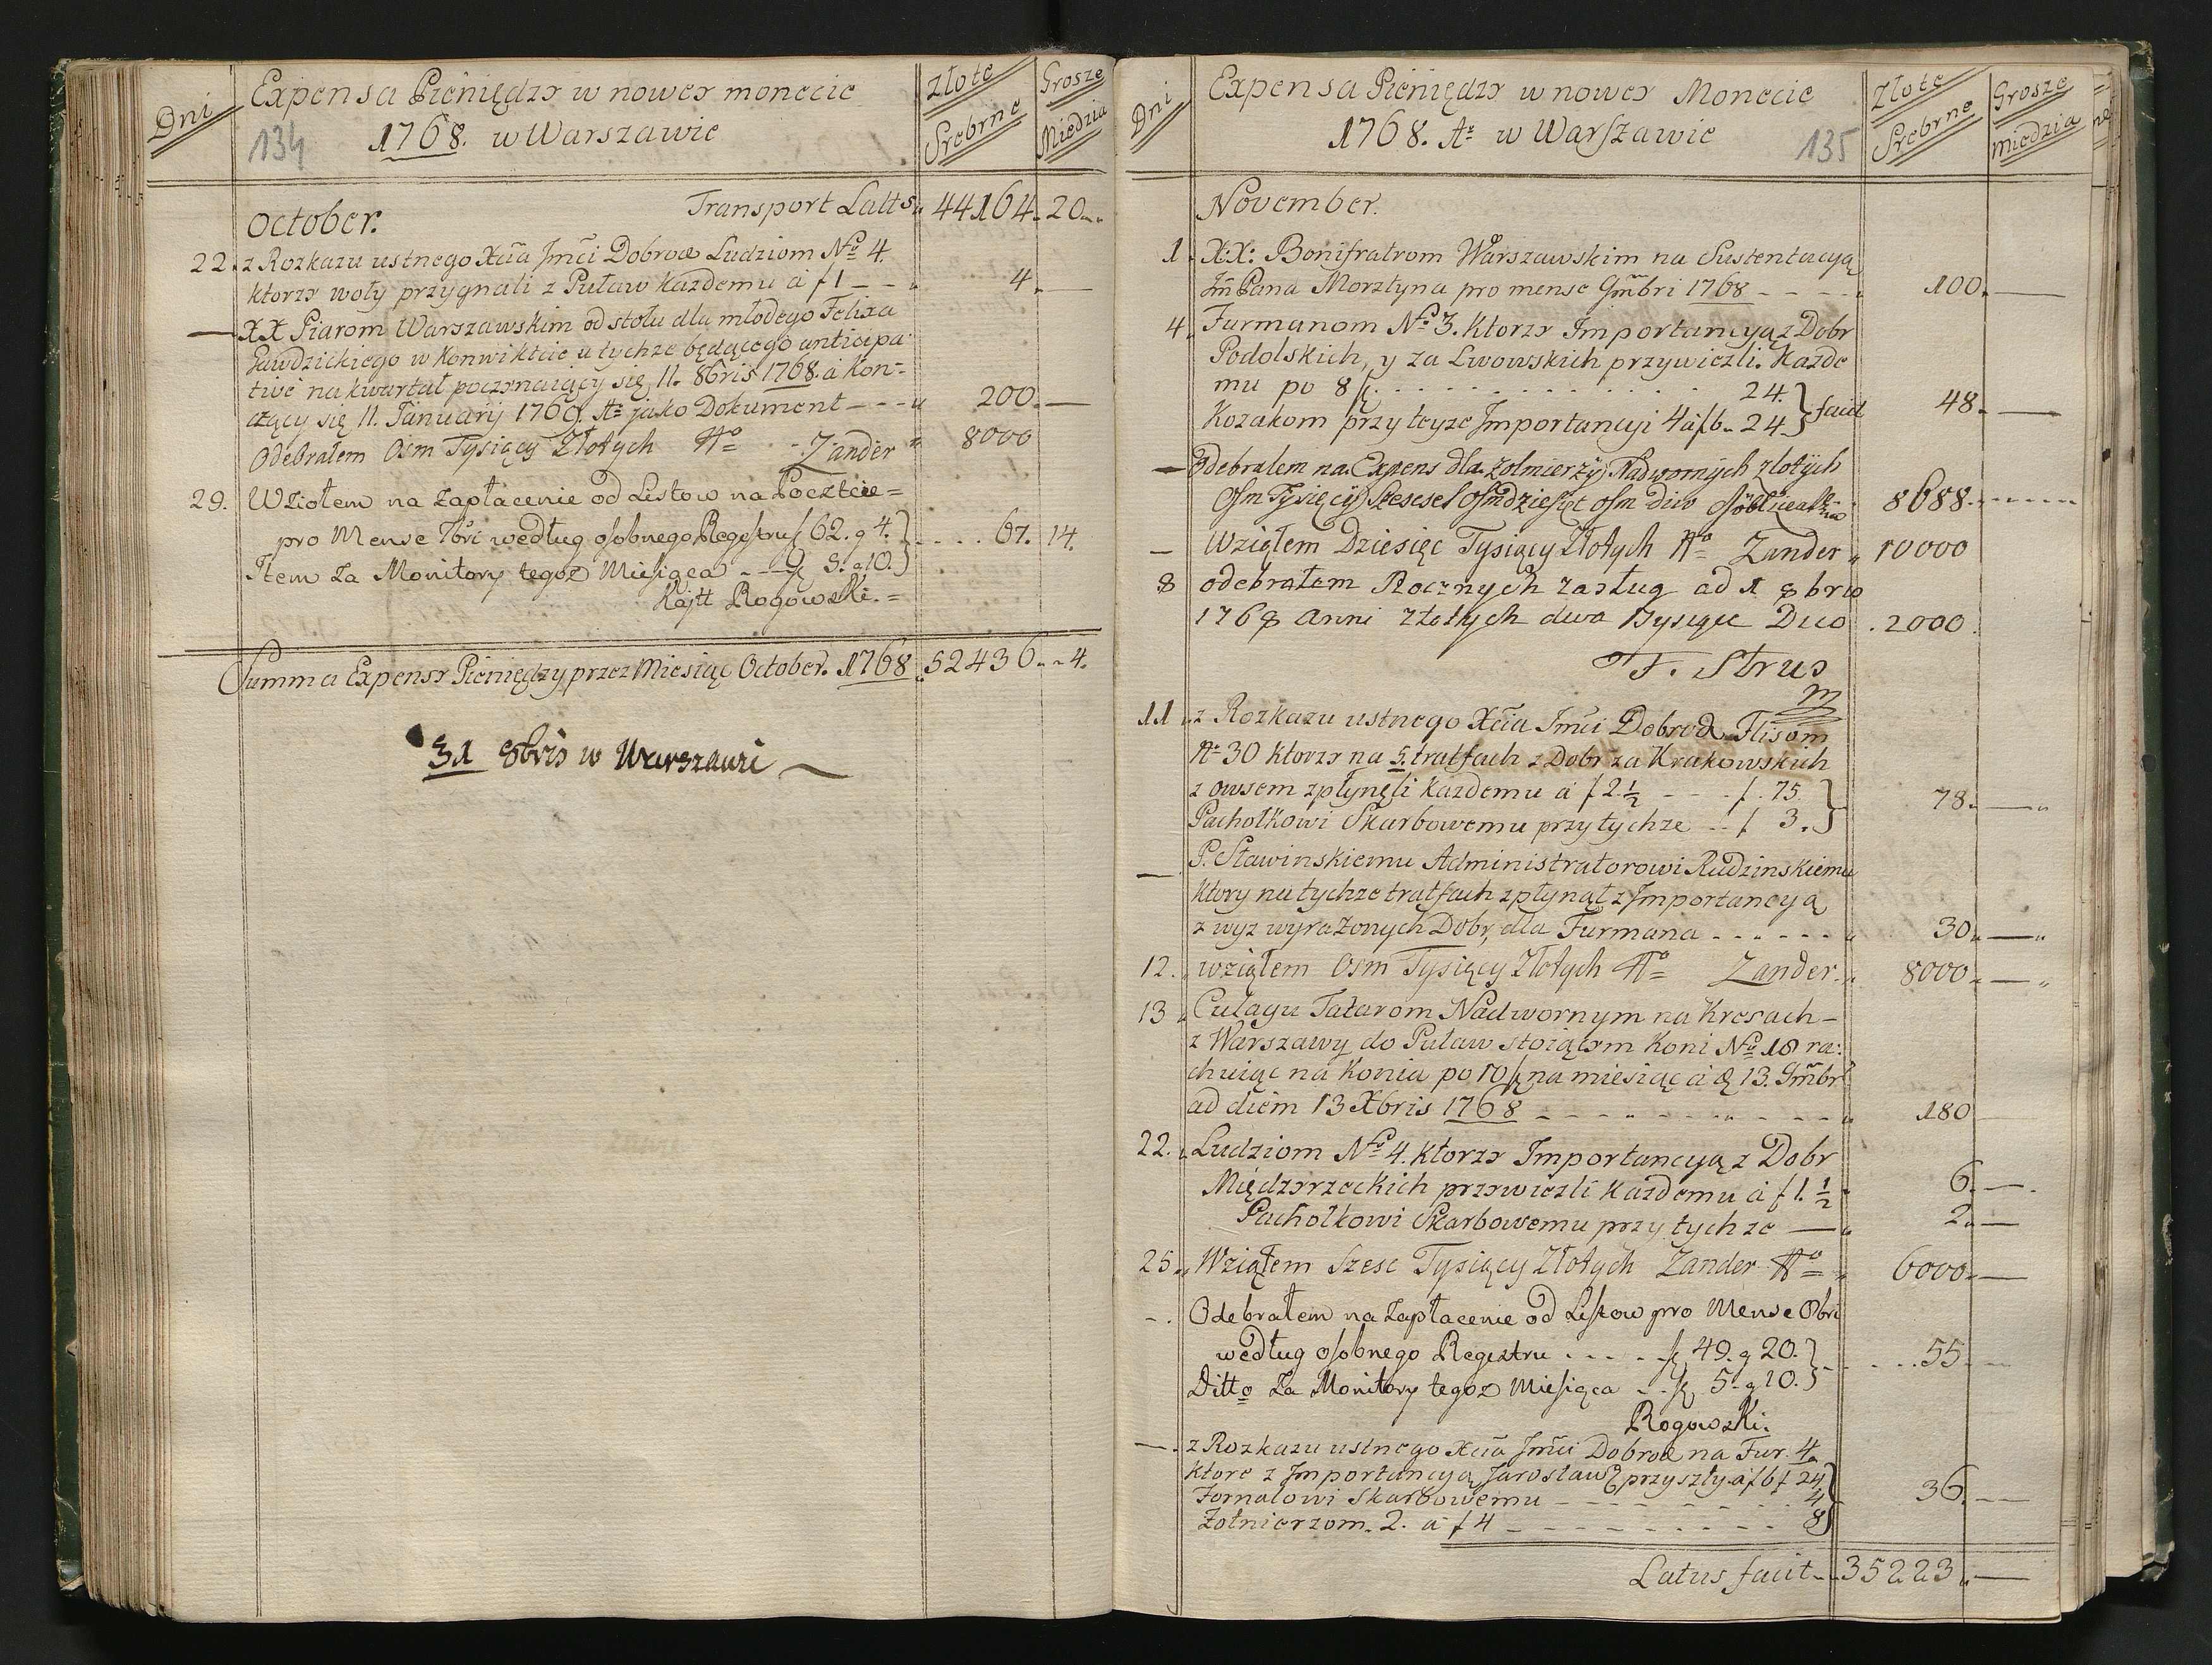 Dni
Expensa Pieniędzy w nowey monecie
134 1768. w Warszawie
Złote Srebrne
Grosze Miedzią
October. Transport Latts 44164. 20.
22. z Rozkazu ustnego Xcia Jmci Dobrod Ludziom No 4.
ktorzy woły przygnali z Puław każdemu á f 1 - - 4. —
— XX Piarom Warszawskim od stołu dla młodego Felixa
Gawdzickiego w Konwikcie u tychże będącego anticipa
tive na kwartał poczynaiący się 11. 8bris 1768. a Kon-
czący się 11. Januarij 1769. Ao jako Dokument - - - 200. —
Odebrałem Osm Tysięcy Złotych Zander 8000
29. Wziołem na Zapłacenie od Listow na Poczcie =
pro Mense 7bri według osobnego Regestru f 62. g 4. } . . . . 67. 14.
Item Za Monitory tegoż Miesiąca - - f 5. g 10. }
Rogowski. =
Summa Expensy Pieniędzy przez Miesiąc October. 1768 52436. 4.
31 8bris w Warszawi
Dni
Expensa Pieniędzy w nowey Monecie
1768. Ao w Warszawie 135
Złote Srebrne
Grosze miedzią
November.
1. XX: Bonifratrom Warszawskim na Sustentacyą
Jm Pana Morsztyna pro mense 9mbri 1768 - - - - 100. —
4. Furmanom No 3. ktorzy Importancyą z Dobr
Podolskich, y za Lwowskich przywiezli. Kazde
mu po 8 f. . . . . . . . . . 24. } facit 48. —
Kozakom przy teyze Importancyi 4 á f 6. 24. }
— Odebralem na Expens dla Zolnierzy Nadwornych zlotych
Osm Tysięcy Szescset Osmdziesiąt Osm Dico 8688.
— Wziąłem Dziesięc Tysiący Złotych Zander 10000
8 odebrałem Rocznych zasług ad 1 8bris
1768 Anni Złotych dwa Tysięce Dico . 2000.
F. Strus
11. z Rozkazu ustnego Xcia Jmci Dobrod Flisom
No 30 ktorzy na 5. tratfach z Dobr za Krakowskich
z owsem zpłynęli każdemu á f 2. 1/2 - - - f. 75. } 78. —
Pachołkowi Skarbowemu przy tychze . . f 3. }
— P. Stawinskiemu Administratorowi Rudzinskiemu
ktory na tychze tratfach zpłynął z Importancyą
z wyz wyrażonych Dobr, dla Furmana - - - - - - 30. —
12. wziąłem Osm Tysiący Złotych Zander. 8000. —
13. Culagu Tatarom Nadwornym na Kresach -
z Warszawy do Puław stoiącym Koni No 18 ra:
chuiąc na Konia po 10 f na miesiąc á d 13. 9mbr
ad diem 13 Xbris 1768 - - - - - - - - 180
22. Ludziom No 4. ktorzy Importancyą z Dobr
Międzyrzeckich przywiezli każdemu á f 1. 1/2 6. —
Pachołkowi Skarbowemu przy tychze — 2. —
25. Wziąłem Szesc Tysiący Złotych Zander 6000. —
- . Odebrałem na Zapłacenie od Listow pro Mense 8bri
według osobnego Regestru . . . . f 49. g 20. } . . . . 55. —
Ditto Za Monitory tegoż Miesiąca . . f 5. g 10. }
Rogowski.
— . z Rozkazu ustnego Xcia Jmci Dobrod na Fur. 4.
ktore z Importancyą Jarosławs. przyszły á f 6 f 24. }
Fornalowi Skarbowemu - - - - - - - 4 } 36. —
Zołnierzom. 2. á f 4 - - - - - - - - - 8 }
Latus facit - - 35223. —